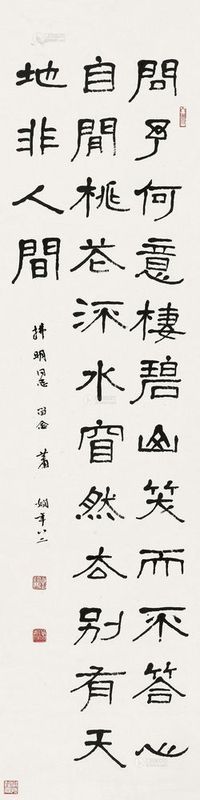 問予何意棲碧山笑而不答心
自閒桃花流水窅然去別有天
地非人間
明同志留念 蕭嫻年八二